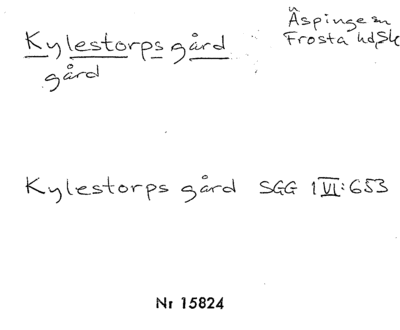 Kylestorps gård
gård
Äspinge sn
Frosta hd, Sk
Kylestorps gård SGG 1 VI:653
Nr 15824